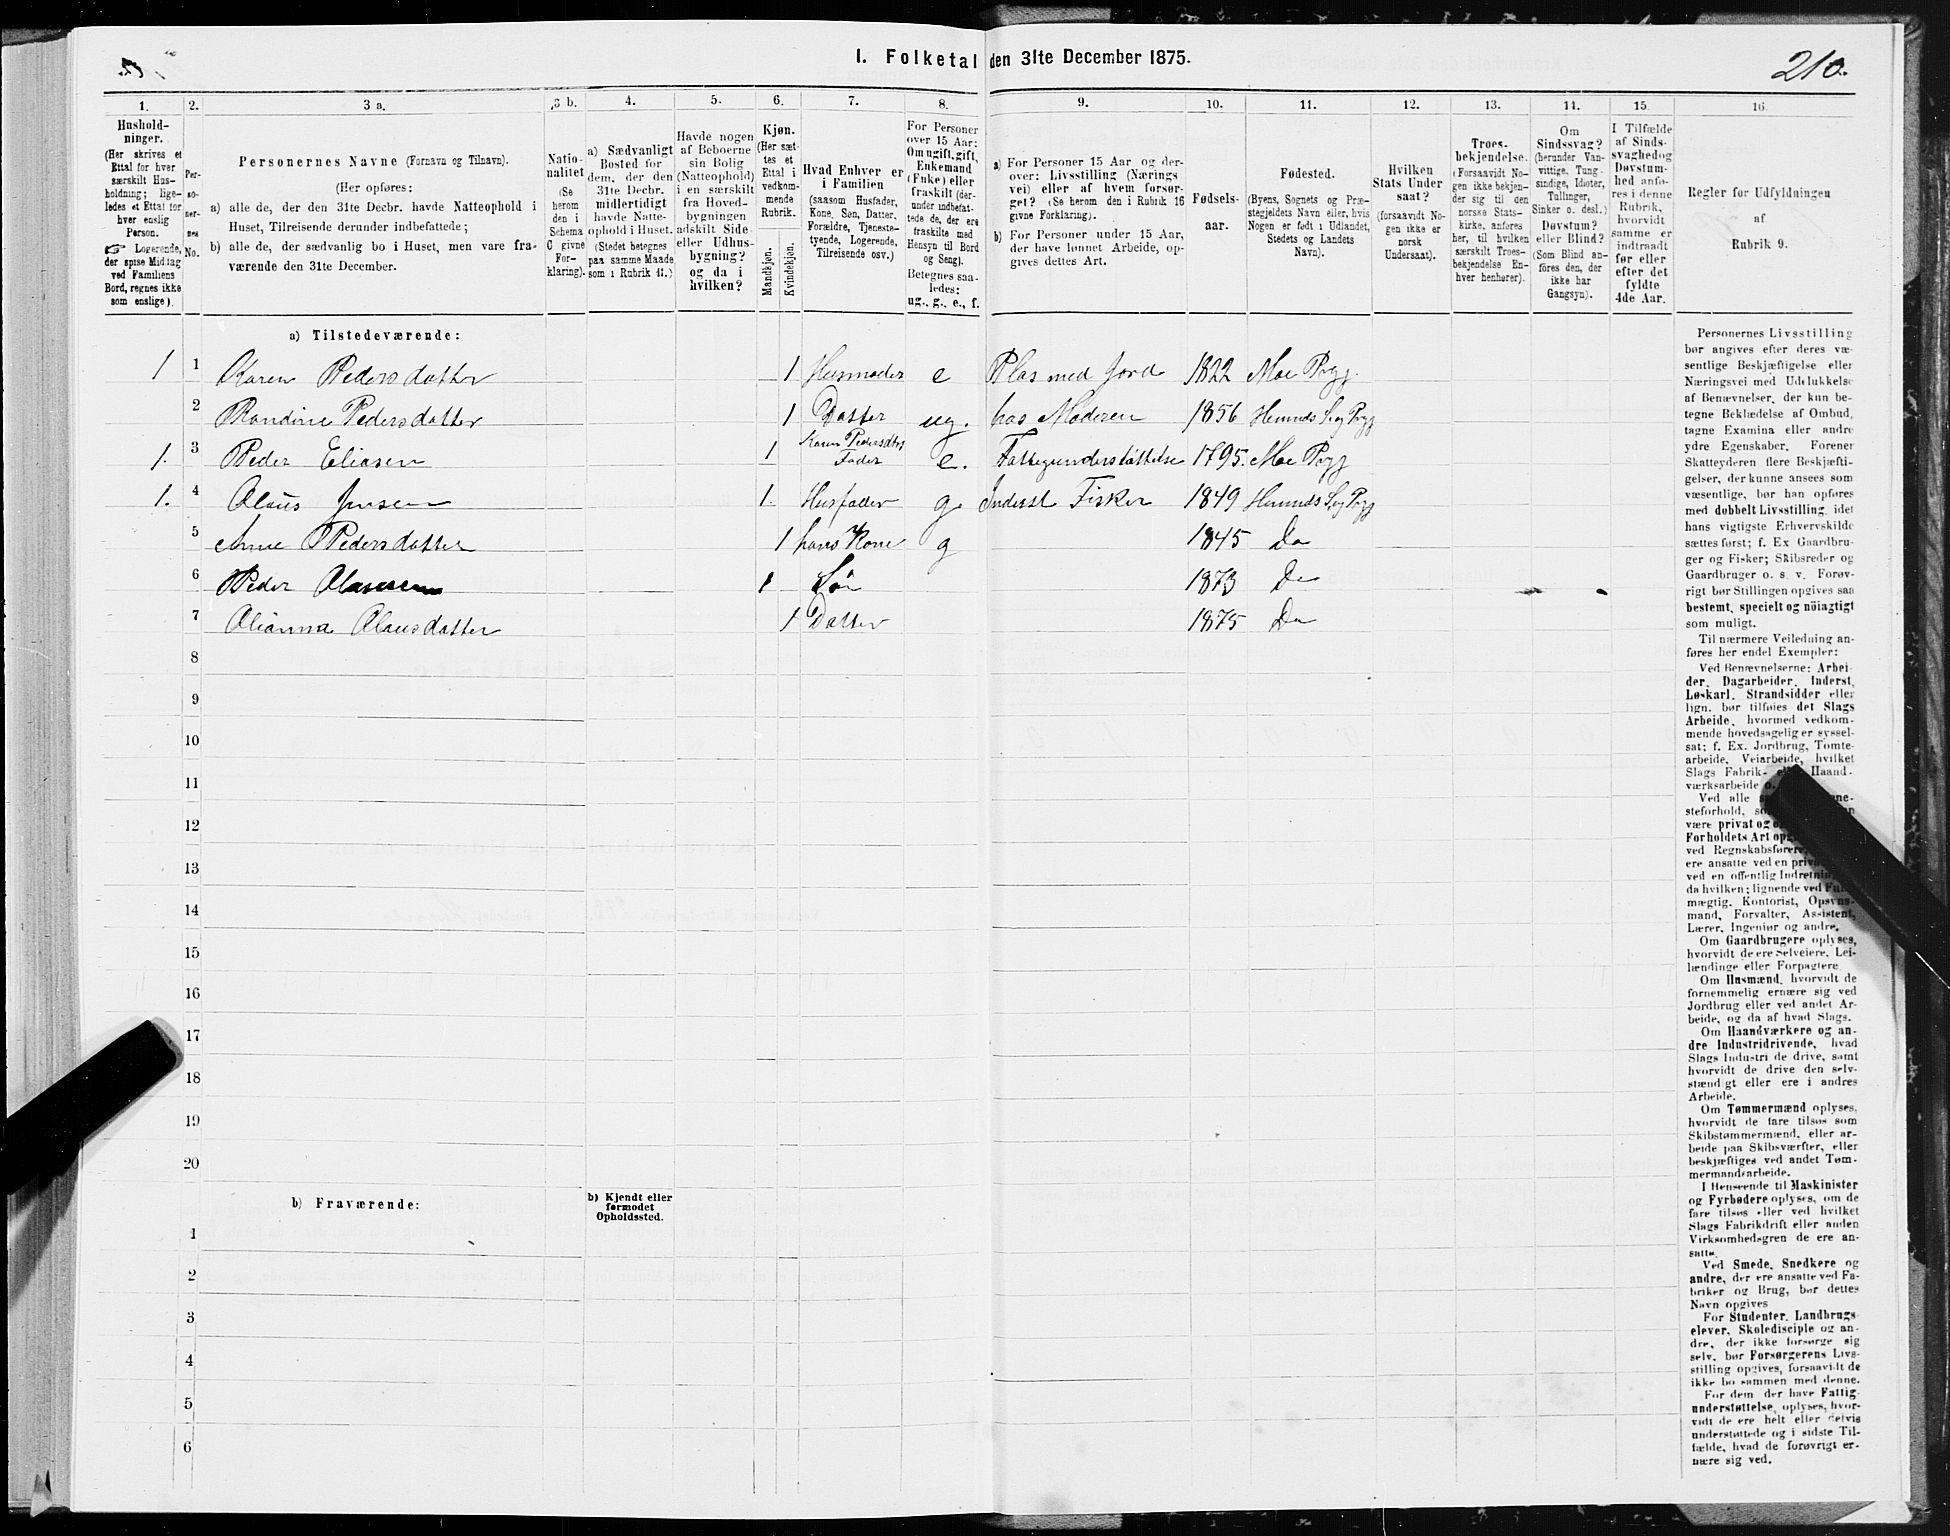 I. Folketal den 31te December 1875.
210.
1. 2. 3 a. 3 b. 4. 5. 6. 7. 8. 9. 10. 11. 12. 13. 14. 15. 16.
Hushold-
ninger.
(Her skrives et
Ettal for hver
særskilt Hus-
holdning; lige-
ledes et Ettal for
hver enslig
Person.
☞ Logerende,
der spise Middag
ved Familiens
Bord, regnes ikke
som enslige).
Per-
so-
ner-
nes
No.
Personernes Navne (Fornavn og Tilnavn).
(Her opføres:
a) alle de, der den 31te Decbr. havde Natteophold i
Huset, Tilreisende derunder indbefattede;
b) alle de, der sædvanlig bo i Huset, men vare fra-
værende den 31te December.
Natio-
nalitet
(Se
herom
den i
Schema
C givne
For-
klaring).
a) Sædvanligt
Bosted for
dem, der den
31te Decbr.
midlertidigt
havde Natte-
ophold i Huset.
(Stedet betegnes
paa samme Maade
som i Rubrik 11.)
Havde nogen
af Beboerne
sin Bolig
(Natteophold)
i en særskilt
fra Hoved-
bygningen
adskilt Side-
eller Udhus-
bygning?
og da i
hvilken?
Kjøn.
(Her sæt-
tes et
Ettal i
vedkom-
mende
Rubrik.
Mandkjøn.
Kvindekjøn.
Hvad Enhver er
i Familien
(saasom Husfader,
Kone, Søn, Datter,
Forældre, Tjeneste-
tyende, Logerende,
Tilreisende osv.)
For Personer
over 15 Aar:
Om ugift, gift,
Enkemand
(Enke) eller
fraskilt (der-
under indbefat-
tede de, der ere
fraskilte med
Hensyn til Bord
og Seng).
Betegnes saa-
ledes:
ug., g., e., f.
a) For Personer 15 Aar og der-
over: Livsstilling (Nærings
vei) eller af hvem forsør-
get? (Se herom den i Rubrik 16
givne Forklaring).
b) For Personer under 15 Aar,
der have lønnet Arbeide, op-
gives dettes Art.
Fødsels-
aar.
Fødested.
(Byens, Sognets og Præ-
stegjeldets Navn eller, hvis
Nogen er født i Udlandet,
Stedets og Landets
Navn).
Hvilken
Stats Under
saat?
(forsaavidt No-
gen ikke er
norsk
Undersaat).
Troes-
bekjendelse.
(Forsaavidt No-
gen ikke bekjen-
der sig til den
norske Stats-
kirke, anføres
her, til hvilken
særskilt Troes-
bekjendelse En-
hver henhører).
Om
Sindssvag?
(herunder Van-
vittige, Tung-
sindige, Idioter,
Tullinger,
Sinker o. desl.)
Døvstum?
eller Blind?
(Som Blind an-
føres den, der
ikke har
Gangsyn).
I Tilfælde
af Sinds-
svaghed og
Døvstum-
hed anfø-
res i denne
Rubrik,
hvorvidt
samme er
indtraadt
før eller
efter det
fyldte
4de Aar.
Regler for Udfyldningen
af
Rubrik 9.
a) Tilstedeværende:
1 1 Karen Pedersdatter 1 Husmoder e Plas med Jord 1822 Moe Prgj.
2 Randine Pedersdatter 1 Datter ug. hos Moderen 1856 Hemnds Sog Prgj
1. 3 Peder Eliasen 1 Karen Pedersdtrs
Fader e. Fattigunderstøttelse 1795. Moe Prgj
1. 4 Olaus Jensen 1. Husfader g. Inderst Fisker 1849 Hemnds Sog Prgj
5 Anne Pedersdatter 1 hans Kone g 1845 Do
6 Peder Olausen 1 Søn 1873 Do
7 Olianna Olausdatter 1 Datter 1875 Do
8
9
10
11
12
13
14
15
16
17
18
19
20
b) Fraværende:
b) Kjendt eller
formodet
Opholdssted.
1
2
3
4
5
6
Personernes Livsstilling
bør angives efter deres væ-
sentlige Beskjæftigelse eller
Næringsvei med Udelukkelse
af Benævnelser, der kun be-
tegne Beklædelse af Ombud,
tagne Examina eller andre
ydre Egenskaber. Forener
Skatteyderen flere Beskjæfti-
gelser, der kunne ansees som
væsentlige, bør han opføres
med dobbelt Livsstilling, idet
hans vigtigste Erhvervskilde
sættes først; f. Ex Gaardbru-
ger og Fisker; Skibsreder og
Gaardbruger o. s. v. Forøv-
rigt bør Stillingen opgives saa
bestemt, specielt og nøiagtigt
som muligt.
Til nærmere Veiledning an-
føres her endel Exempler:
Ved Benævnelserne: Arbei-
der, Dagarbeider, Inderst,
Løskarl, Strandsidder eller
lign. bør tilføies det Slags
Arbeide, hvormed vedkom-
mende hovedsagelig er syssel-
sat; f. Ex. Jordbrug, Tomte-
arbeide, Veiarbeide, hvilket
Slags Fabrik- Haand-
værksarbeide
Ved alle
steforhold,
være privat og
Forholdets Art
ved Regnskabsfører,
ere ansatte ved en
ved en offentlig Indretning
da hvilken; lignende ved Fuld-
mægtig, Kontorist, Opsyns-
mand, Forvalter, Assistent,
Lærer, Ingeniør og andre.
Om Gaardbrugere oplyses,
hvorvidt de ere Selveiere, Lei-
lændinge eller Forpagtere
Om Husmænd, hvorvidt de
fornemmelig ernære sig ved
Jordbrug eller ved andet Ar-
beide, og da af hvad Slags.
Om Haandværkere og an-
dre Industridrivende, hvad
Slags Industri de drive, samt
hvorvidt de drive den selv-
stændigt eller ere i andres
Arbeide.
Om Tømmermænd oplyses,
hvorvidt de fare tilsøs som
Skibstømmermænd, eller ar-
beide paa Skibsværfter, eller
beskjæftiges ved andet Tøm-
mermandsarbeide.
I Henseende til Maskinister
og Fyrbødere oplyses, om de
fare tilsøs eller ved hvilket
Slags Fabrikdrift eller anden
Virksomhedsgren de ere an-
satte.
Ved Smede, Snedkere og
andre, der ere ansatte ved Fa-
briker og Brug, bør dettes
Navn opgives
For Studenter, Landbrugs-
elever, Skoledisciple og an-
dre, der ikke forsørge sig
selv, bør Forsørgerens Livs-
stilling opgives, forsaavidt de
ikke bo sammen med denne.
For dem der have Fattig-
understøttelse, oplyses, hvor-
vidt de ere helt eller delvis
understøttede og i sidste Til-
fælde, hvad de forøvrigt er-
nære sig ved.